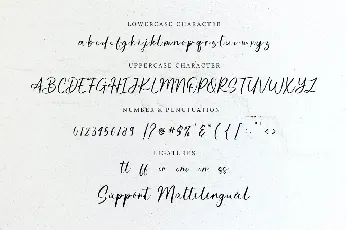 LOWERCASE CHARACTER
abcdefghijklmnopqrstuvwxyz
UPPERCASE CHARACTER
ABCDEFGHIJKLMNOPQRSTUVWXYZ
NUMBER & PUNCTUATION
0123456789 !?@#$%'&*({[:;"<>
LIGATURES
tt ff ss
Support Multilingual